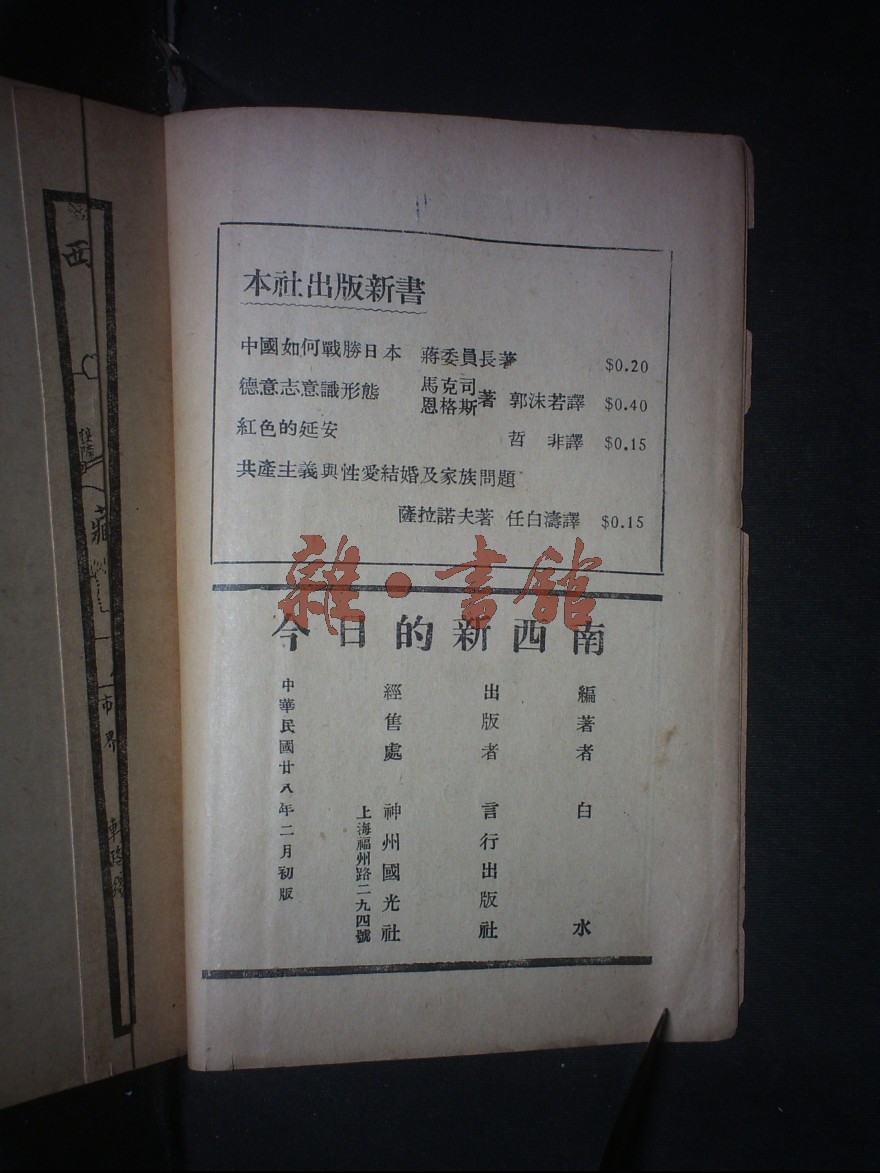 本社出版新書
中國如何戰勝日本 蔣委員長著 $0.20
德意志意識形態 馬克司 恩格斯 著 郭沫若譯 $0.40
紅色的延安 哲非譯 $0.15
共產主義與性愛結婚及家族問題
薩拉諾夫著 任白濤譯 $0.15
雜·書館
今日的新西南
編著者 白水
出版者 言行出版社
經售處 神州國光社
上海福州路二九四號
中華民國廿八年二月初版
西
藏
市界